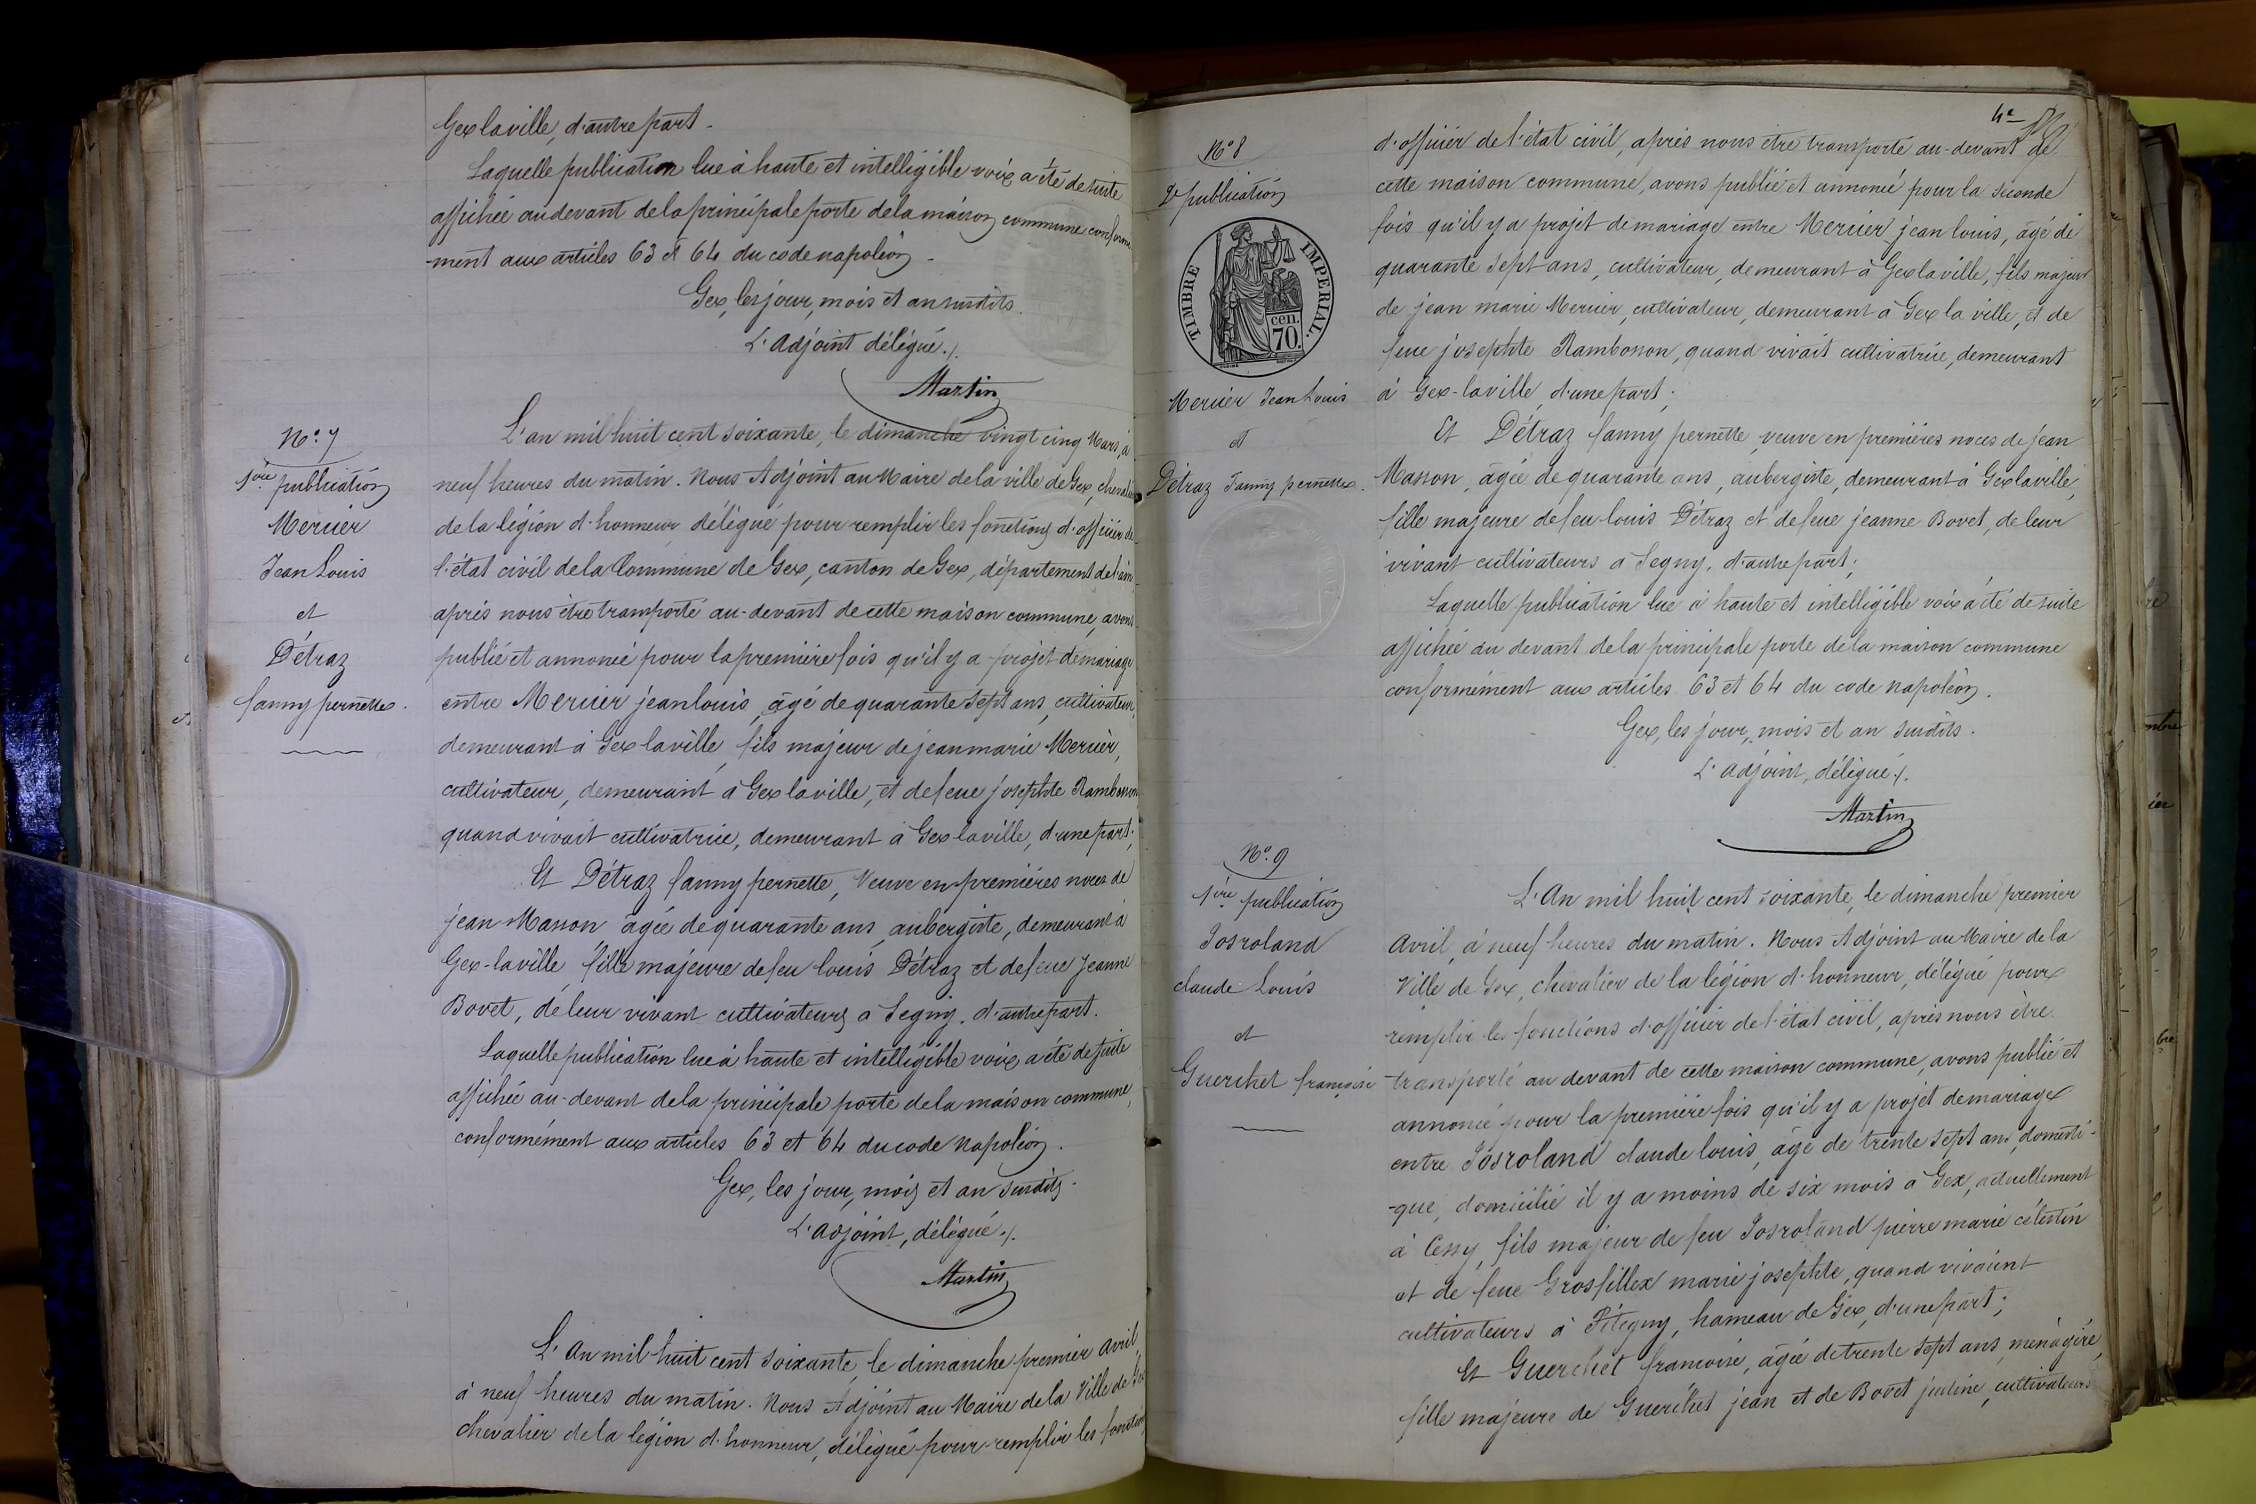 Gex laville, d'autre part.
Laquelle publication lue à haute et intelligible voix a été de suite
affichée au devant de la principale porte de la maison commune conformé
-ment aux articles 63 et 64 du code napoléon.
Gex, les jour, mois et an susdits.
L'Adjoint délégué./.
Martin
N° 7
1ère publication
Mercier
Jean Louis
et
Détraz
fanny pernette.
L'an mil huit cent soixante, le dimanche vingt cinq Mars, à
neuf heures du matin. Nous Adjoint au Maire de la ville de Gex, chevalier
de la légion d'honneur, délégué pour remplir les fonctions d'officier de
l'état civil de la Commune de Gex, canton de Gex, département de l'ain
après nous être transporté au-devant de cette maison commune, avons
publié et annoncé pour la première fois qu'il y a projet de mariage
entre Mercier jean louis, âgé de quarante sept ans, cultivateur,
demeurant à Gex laville, fils majeur de jean marie Mercier,
cultivateur, demeurant à Gex laville, et de feue josephte Rambosson
quand vivait cultivatrice, demeurant à Gex laville, d'une part;
Et Détraz fanny pernette, Veuve en premières noces de
jean Masson âgée de quarante ans, aubergiste, demeurant à
Gex-laville fille majeure de feu louis Détraz et de feue Jeanne
Bovet, de leur vivant cultivateurs a Segny, d'autre part.
Laquelle publication lue à haute et intelligible voix a été de suite
affichée au-devant de la principale porte de la maison commune,
conformément aux articles 63 et 64 du code Napoléon.
Gex, les jour, mois et an susdits.
L'adjoint, délégué./.
Martin
L'An mil huit cent soixante, le dimanche premier avril,
à neuf heures du matin. Nous Adjoint au Maire de la Ville de Gex
Chevalier de la légion d'honneur, délégué pour remplir les fonctions
4e
N° 8
2e publication
TIMBRE IMPERIAL
cen. 70.
Mercier Jean Louis
et
Détraz Fanny pernette.
d'officier de l'état civil, après nous être transporté au-devant de
cette maison commune, avons publié et annoncé pour la seconde
fois qu'il y a projet de mariage entre Mercier jean louis, âgé de
quarante sept ans, cultivateur, demeurant à Gex laville, fils majeur
de jean marie Mercier, cultivateur, demeurant à Gex la ville, et de
feue josephte Rambosson, quand vivait cultivatrice, demeurant
à Gex-laville, d'une part;
Et Détraz fanny pernette, veuve en premières noces de jean
Masson, âgée de quarante ans, aubergiste, demeurant à Gex laville,
fille majeure de feu louis Détraz et de feue jeanne Bovet, de leur
vivant cultivateurs à Segny, d'autre part;
Laquelle publication lue à haute et intelligible voix a été de suite
affichée au devant de la principale porte de la maison commune
conformément aux articles 63 et 64 du code Napoléon.
Gex, les jour, mois et an susdits.
L'adjoint, délégué./.
Martin
N° 9
1ère publication
Josroland
claude Louis
et
Guerchet françoise
L'An mil huit cent soixante, le dimanche premier
Avril, à neuf heures du matin. Nous Adjoint au Maire de la
Ville de Gex, chevalier de la légion d'honneur, délégué pour
remplir les fonctions d'officier de l'état civil, après nous être
transporté au devant de cette maison commune, avons publié et
annoncé pour la première fois qu'il y a projet de mariage
entre Josroland claude louis, âgé de trente sept ans, domesti-
-que, domicilié il y a moins de six mois a Gex, actuellement
à Cessy, fils majeur de feu Josroland pierre marie célestin
et de feue Grosfillex marie josephte, quand vivaient
cultivateurs à Pitegny, hameau de Gex, d'une part;
Et Guerchet françoise, âgée de trente sept ans, ménagère,
fille majeure de Guerchet jean et de Bovet justine, cultivateurs